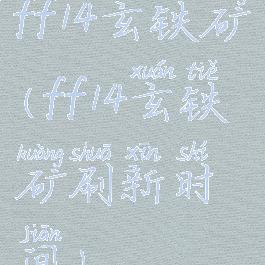 ff14玄铁矿
xuán tiě
(ff14玄铁
kuàng shuā xīn shí
矿刷新时
jiān
间)